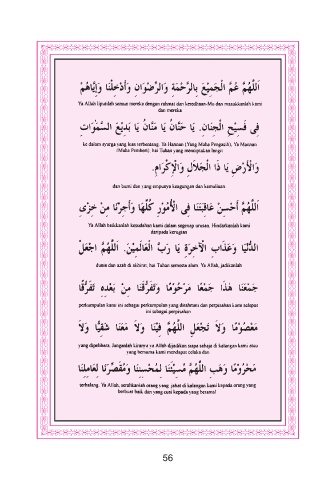 اَللّٰهُمَّ عُمَّ الْجَمِيْعَ بِالرَّحْمَةِ وَالرِّضْوَانِ وَأَدْخِلْنَا وَإِيَّاهُمْ
Ya Allah liputilah semua mereka dengan rahmat dan keredhaan-Mu dan masukkanlah kami
dan mereka
فِى فَسِيْحِ الْجِنَانِ. يَا حَنَّانُ يَا مَنَّانُ يَا بَدِيْعَ السَّمٰوَاتِ
ke dalam syurga yang luas terbentang. Ya Hannan (Yang Maha Pengasih), Ya Mannan
(Maha Pemberi), hai Tuhan yang menciptakan langit
وَالْأَرْضِ يَا ذَا الْجَلَالِ وَالْإِكْرَامِ.
dan bumi dan yang empunya keagungan dan kemuliaan
اَللّٰهُمَّ أَحْسِنْ عَاقِبَتَنَا فِى الْأُمُوْرِ كُلِّهَا وَأَجِرْنَا مِنْ خِزْىِ
Ya Allah baikkanlah kesudahan kami dalam segenap urusan, Hindarkanlah kami
daripada kerugian
الدُّنْيَا وَعَذَابِ الْآخِرَةِ يَا رَبَّ الْعَالَمِيْنَ. اَللّٰهُمَّ اجْعَلْ
dunia dan azab di akhirat, hai Tuhan semesta alam. Ya Allah, jadikanlah
جَمْعَنَا هٰذَا جَمْعًا مَرْحُوْمًا وَتَفَرُّقَنَا مِنْ بَعْدِهِ تَفَرُّقًا
perkumpulan kami ini sebagai perkumpulan yang dirahmati dan perpisahan kami selepas
ini sebagai perpisahan
مَعْصُوْمًا وَلَا تَجْعَلِ اللّٰهُمَّ فِيْنَا وَلَا مَعَنَا شَقِيًّا وَلَا
yang dipelihara. Janganlah kiranya ya Allah dijadikan siapa sahaja di kalangan kami atau
yang bersama kami mendapat celaka dan
مَحْرُوْمًا وَهَبِ اللّٰهُمَّ مُسِيْئَنَا لِمُحْسِنِنَا وَمُقَصِّرَنَا لِعَامِلِنَا
terhalang. Ya Allah, serahkanlah orang yang jahat di kalangan kami kepada orang yang
berbuat baik dan yang cuai kepada yang beramal
56